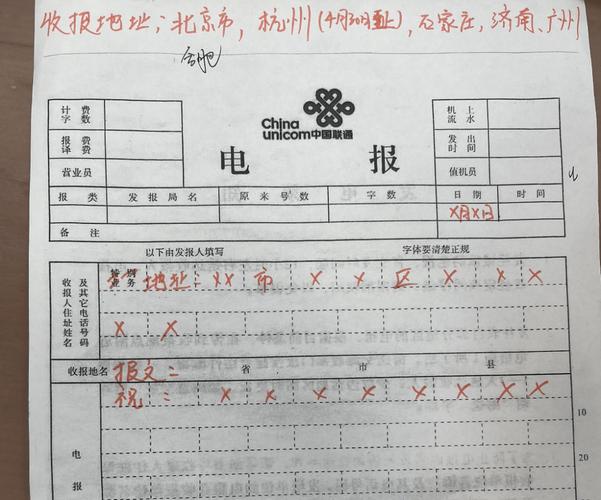 收报地址：北京市，杭州(4月30日止)，石家庄，济南、广州
合肥
China
unicom中国联通
电 报
计费字数
报费译费
营业员
机上流水
发出时间
值机员
报类 发报局名 原来号数 字数 日期 时间
X月X日
备注
以下由发报人填写 字体要清楚正规
收报人住址姓名及其它电话号码
特别业务 地址：XX 市 X X 区 X X X
X X
收报地名 报文： 省 市 县
祝： X X X X X X X X
10
20
电报